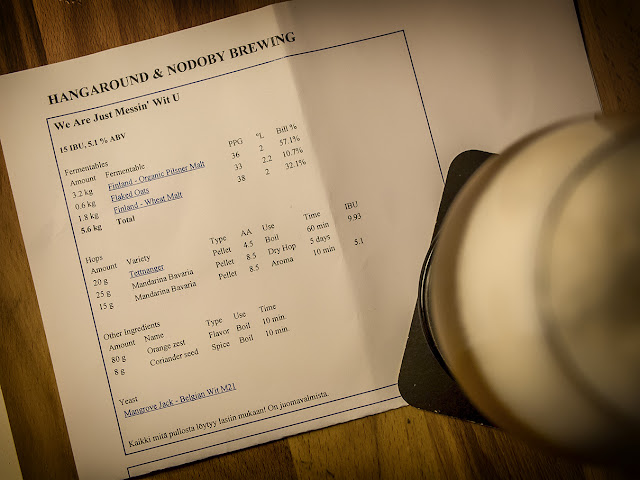 HANGAROUND & NODOBY BREWING
We Are Just Messin' Wit U
15 IBU, 5.1 % ABV
Fermentables
Amount Fermentable PPG °L Bill %
3.2 kg Finland - Organic Pilsner Malt 36 2 57.1%
0.6 kg Flaked Oats 33 2.2 10.7%
1.8 kg Finland - Wheat Malt 38 2 32.1%
5.6 kg Total
Hops
Amount Variety Type AA Use Time IBU
20 g Tettnanger Pellet 4.5 Boil 60 min 9.93
25 g Mandarina Bavaria Pellet 8.5 Dry Hop 5 days
15 g Mandarina Bavaria Pellet 8.5 Aroma 10 min 5.1
Other Ingredients
Amount Name Type Use Time
80 g Orange zest Flavor Boil 10 min
8 g Coriander seed Spice Boil 10 min.
Yeast
Mangrove Jack - Belgian Wit M21
Kaikki mitä pullosta löytyy lasiin mukaan! On juomavalmista.